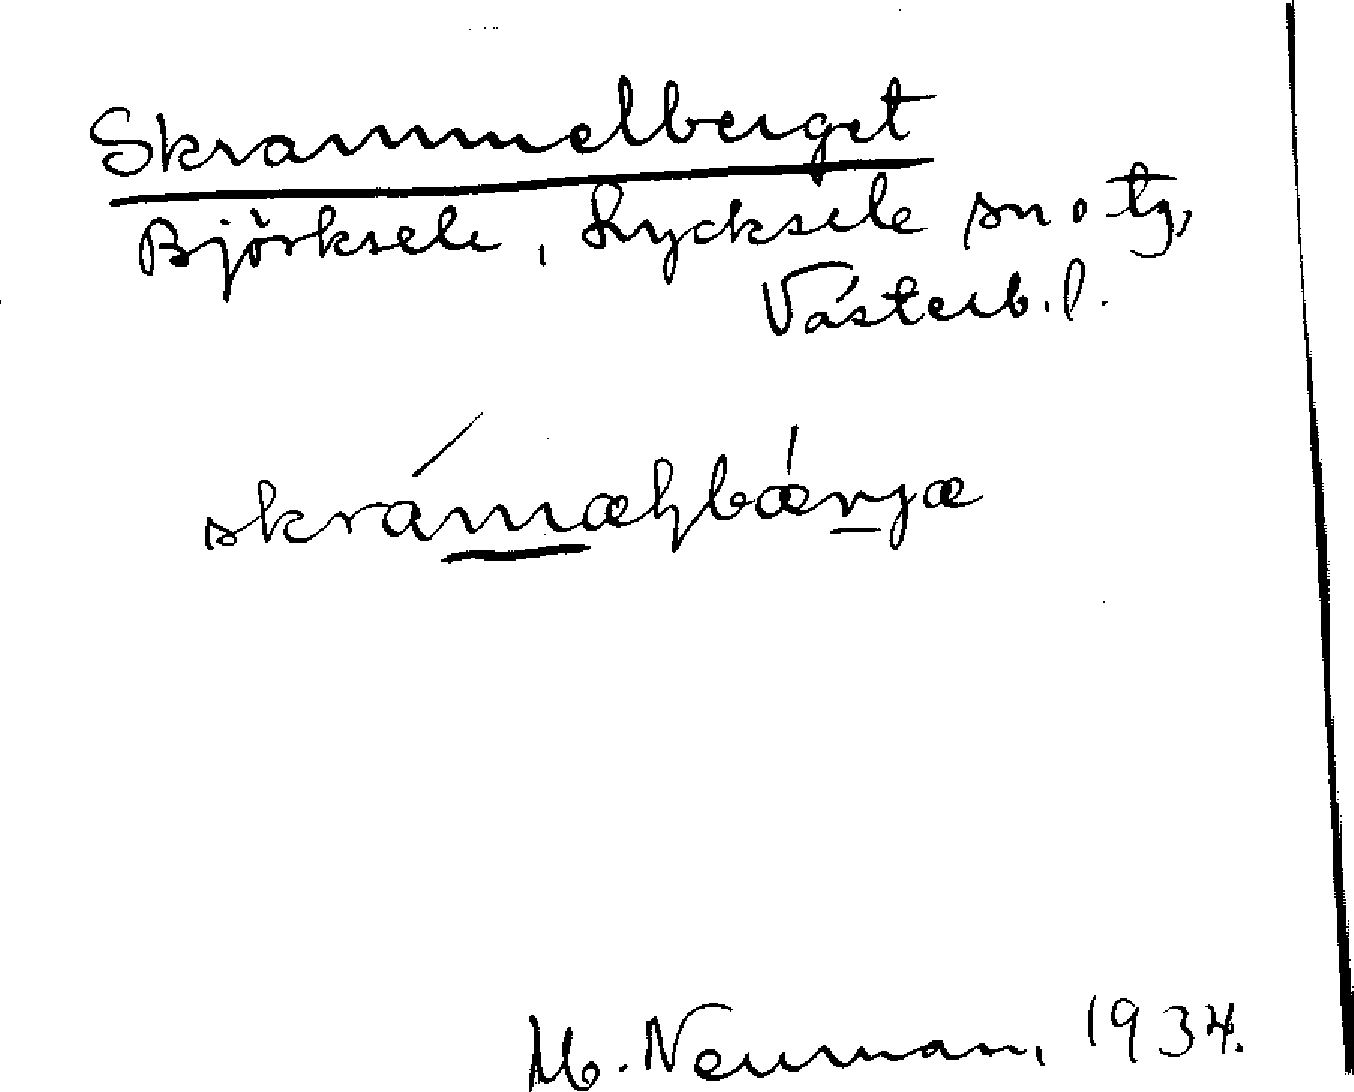 Skrammelberget
Björksele, Lycksele sn o tg,
Västerb. l.
skrámæɧbǽrjæ
M. Neuman, 1934.